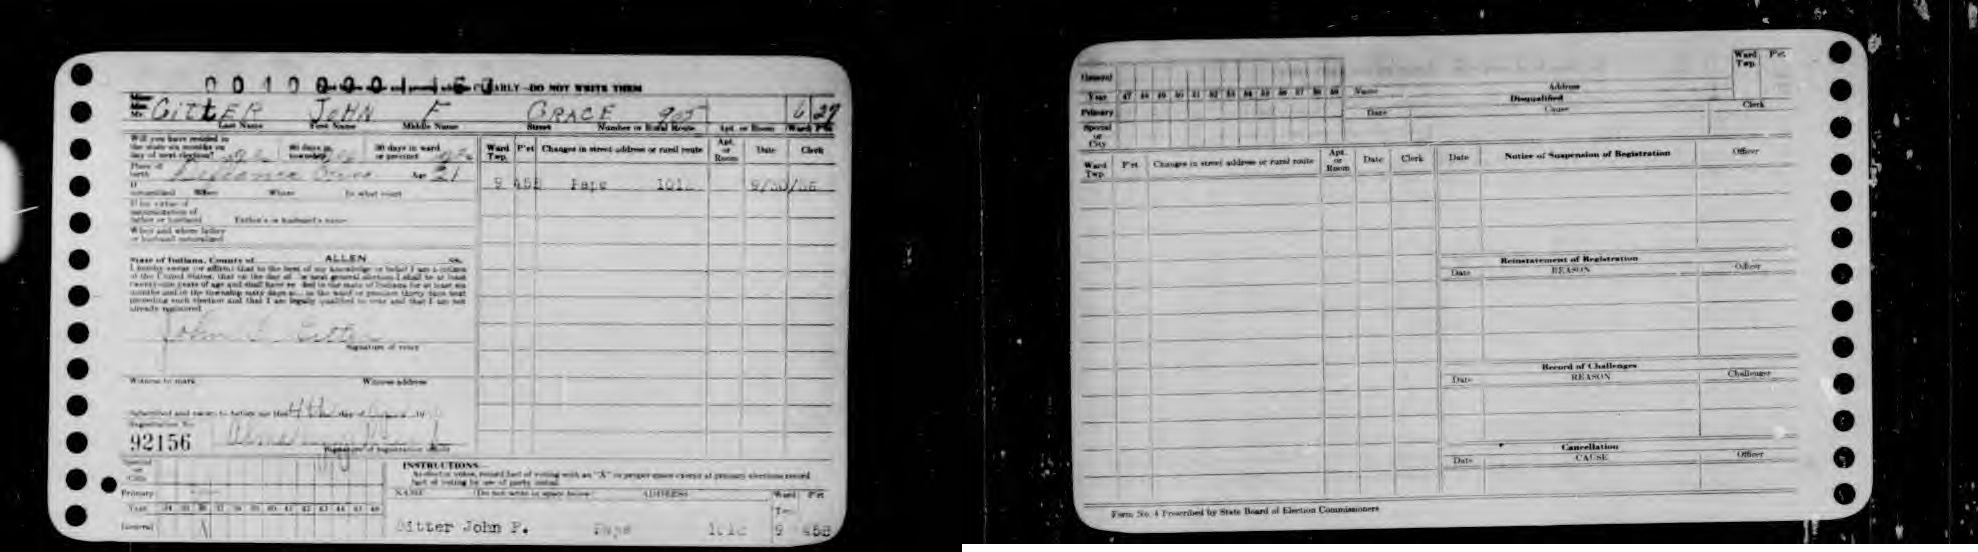 CLEARLY—DO NOT WRITE THEM
GITTER JOHN F GRACE 905 6 27
Last Name First Name Middle Name Street Number or Rural Route Apt. or Room Ward P'ct
Will you have resided in
the state six months on
day of next election? 60 days in township 30 days in ward or precinct
Place of birth Defiance Age 21
If naturalized When Where In what court
If by virtue of
naturalization of
father or husband Father's or husband's name
When and where father
or husband naturalized
State of Indiana, County of ALLEN SS.
I hereby swear (or affirm) that to the best of my knowledge or belief I am a citizen
of the United States, that on the day of next general election I shall be at least
twenty-one years of age and shall have resided in the state of Indiana for at least six
months and in the township sixty days and in the ward or precinct thirty days next
preceding such election and that I am legally qualified to vote and that I am not
already registered.
John Gitter
Signature of voter
Witness to mark Witness address
Subscribed and sworn to before me this 4th day of 19
Registration No.
92156
Signature of registration officer
Ward Twp. P'ct Changes in street address or rural route Apt. or Room Date Clerk
9 458 Pape 9/30/36
Special or City
Primary
Year 34 35 36 37 38 39 40 41 42 43 44 45 46
General X
INSTRUCTIONS
As elector votes, record fact of voting with an "X" in proper space except at primary elections record
fact of voting by use of party initial.
NAME (Do not write in space below) ADDRESS Ward Twp. P'ct
Gitter John F. Pape 9 458
General
Year 47 48 49 50 51 52 53 54 55 56 57 58 59
Primary
Special or City
Name Address Ward Twp. P'ct
Disqualified
Date Cause Clerk
Ward Twp. P'ct Changes in street address or rural route Apt. or Room Date Clerk
Date Notice of Suspension of Registration Officer
Reinstatement of Registration
Date REASON Officer
Record of Challenges
Date REASON Challenger
Cancellation
Date CAUSE Officer
Form No. 4 Prescribed by State Board of Election Commissioners